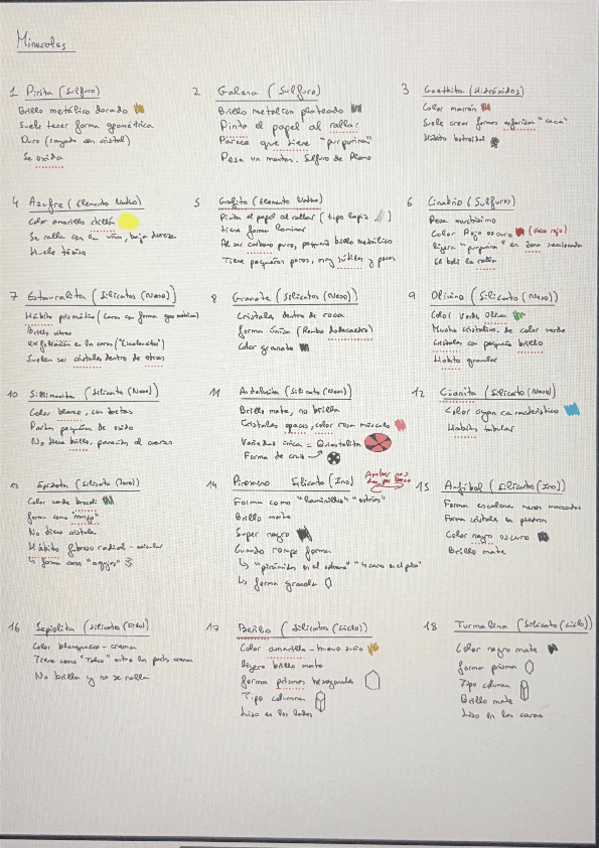 Minerales
1 Pirita (Sulfuro)
Brillo metálico dorado
Suele tener forma geométrica
Duro (rayado con cristal)
Se oxida
2 Galena (Sulfuro)
Brillo metálico plateado
Pinta el papel al rallar
Parece que tiene "purpurina"
Pesa un monton. Sulfuro de Plomo
3 Goethita (Hidróxidos)
Color marrón
Suele crear formas esfericas "caca"
Hábito botroidal
4 Azufre (Elemento Nativo)
Color amarillo chillón
Se ralla con la uña, baja dureza
Huele tóxico
5 Grafito (Elemento Nativo)
Pinta el papel al rallar (tipo lapiz)
tiene forma laminar
Al ser carbono puro, pequeño brillo metálico
Tiene pequeños poros, muy sútiles y pocos
6 Cinabrio (Sulfuros)
Pesa muchisimo
Color Rojo oscuro (rojo)
ligera "purpurina" en zona
7 Estaurolita (Silicatos (Neso))
Hábito prismático (Caras con forma geométrica)
Brillo vitreo
exfoliación en las caras ("Escalonado")
Suelen ser cristales dentro de otras
8 Granate (Silicatos (Neso))
Cristales dentro de roca
forma única (Rombo dodecaedro)
Color granate
9 Olivino (Silicato (Neso))
Color verde oliva
Mucho cristalino de color verde
Cristales con pequeño brillo
Habito granular
10 Sillimanita (Silicato (Neso)
Color blanco, con betas
Partes pequeñas de oxido
No tiene brillo, parecido al cuarzo
11 Andalucita (Silicato (Neso))
Brillo mate, no brilla
Cristales opacos, color rosa
Variedad única = Quiastolita
Forma de cruz →
12 Cianita (Silicato (Neso))
Color cyan característico
Habito tabular
13 Epidota (Silicato (Soro)
Color verde
forma como "musgo"
No tiene cristales
Hábito fibroso radial - acicular
↳ forma como "agujas"
14 Piroxeno Silicato (Ino)
Forma como "laminillas" "estrias"
Brillo mate
Super negro
Cuando rompe forma
↳ forma granula
15 Anfibol (Silicatos (Ino))
Forma escalones menos marcados
Forma cristales en piedras
Color negro oscuro
Brillo mate
16 Sepiolita (Silicatos (Filo)
Color blanquezco - crema
Tiene como "Talco" entre las partes
No brilla y no se ralla
17 Berilo (Silicatos (Ciclo))
Color amarillo - huevo sucio
ligero brillo mate
forma prismas hexagonales
Tipo columna
Liso en los lados
18 Turmalina (Silicato (Ciclo))
Color negro mate
forma prisma
Tipo columna
Brillo mate
Liso en las caras